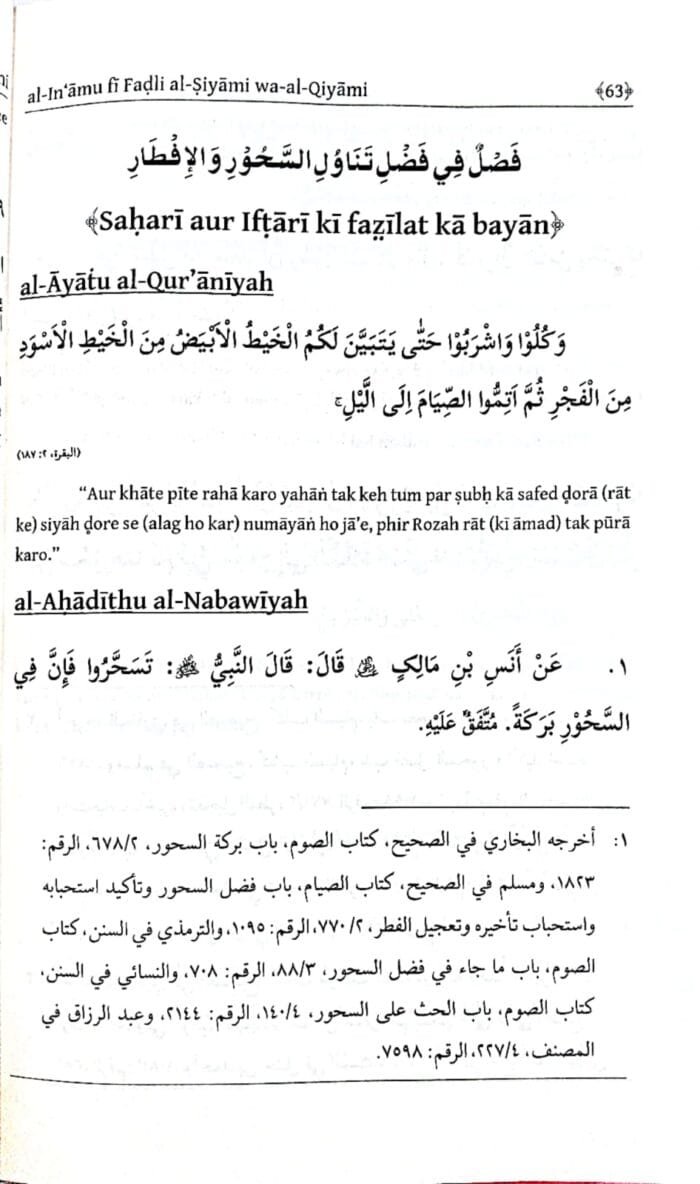 al-In‘āmu fī Faḍli al-Ṣiyāmi wa-al-Qiyāmi ﴾63﴿
فَصْلٌ فِي فَضْلِ تَنَاوُلِ السَّحُوْرِ وَالإِفْطَارِ
﴾Saḥarī aur Ifṭārī kī faẓīlat kā bayān﴿
al-Āyāṫu al-Qur’ānīyah
وَكُلُوْا وَاشْرَبُوْا حَتّٰى يَتَبَيَّنَ لَكُمُ الْخَيْطُ الْاَبْيَضُ مِنَ الْخَيْطِ الْاَسْوَدِ
مِنَ الْفَجْرِ ثُمَّ اَتِمُّوا الصِّيَامَ اِلَى الَّيْلِ ۚ
(البقرة، ٢: ١٨٧)
“Aur khāte pīte rahā karo yahāṅ tak keh tum par ṣubḥ kā safed ḍorā (rāt
ke) siyāh ḍore se (alag ho kar) numāyāṅ ho jā’e, phir Rozah rāt (kī āmad) tak pūrā
karo.”
al-Aḥādīthu al-Nabawīyah
١. عَنْ أَنَسِ بْنِ مَالِكٍ ؓ قَالَ: قَالَ النَّبِيُّ ﷺ: تَسَحَّرُوا فَإِنَّ فِي
السَّحُوْرِ بَرَكَةً. مُتَّفَقٌ عَلَيْهِ.
١: أخرجه البخاري في الصحيح، كتاب الصوم، باب بركة السحور، ٦٧٨/٢، الرقم:
١٨٢٣، ومسلم في الصحيح، كتاب الصيام، باب فضل السحور وتأكيد استحبابه
واستحباب تأخيره وتعجيل الفطر، ٧٧٠/٢، الرقم: ١٠٩٥، والترمذي في السنن، كتاب
الصوم، باب ما جاء في فضل السحور، ٨٨/٣، الرقم: ٧٠٨، والنسائي في السنن،
كتاب الصوم، باب الحث على السحور، ١٤٠/٤، الرقم: ٢١٤٤، وعبد الرزاق في
المصنف، ٢٢٧/٤، الرقم: ٧٥٩٨.